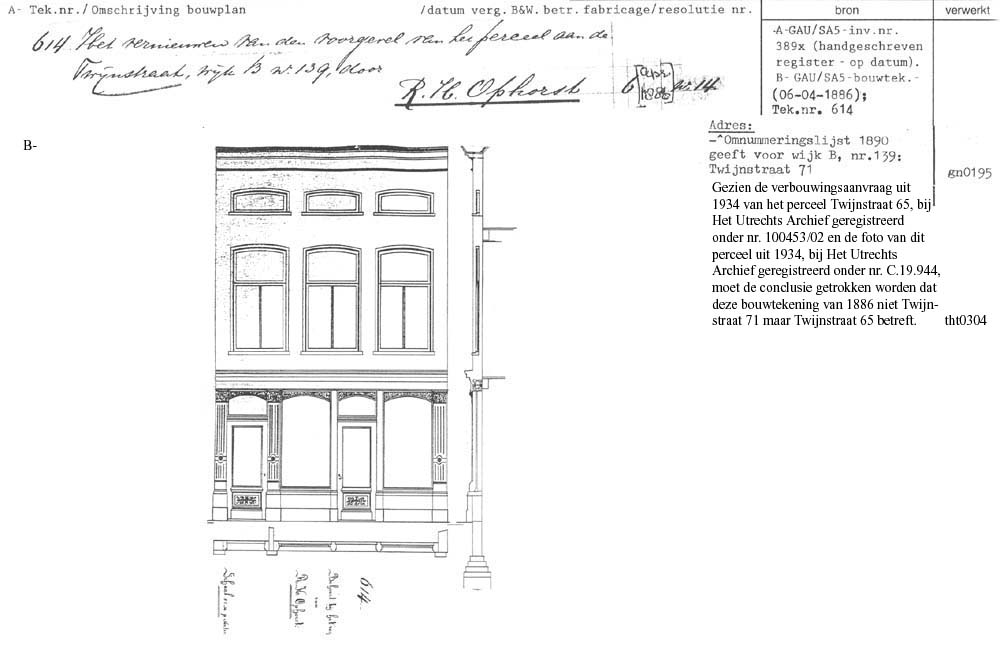 A- Tek.nr./Omschrijving bouwplan /datum verg. B&W. betr. fabricage/resolutie nr. bron verwerkt
614 Het vernieuwen van den voorgevel van het perceel aan de
Twijnstraat, wijk B nº 139, door
R. H. Ophorst 6 [apr 1886] nº. 14
-A-GAU/SA5-inv.nr.
389x (handgeschreven
register - op datum).
B- GAU/SA5-bouwtek.-
(06-04-1886);
Tek.nr. 614
Adres:
-^Omnummeringslijst 1890
geeft voor wijk B, nr.139:
Twijnstraat 71
gn0195
B-
Gezien de verbouwingsaanvraag uit
1934 van het perceel Twijnstraat 65, bij
Het Utrechts Archief geregistreerd
onder nr. 100453/02 en de foto van dit
perceel uit 1934, bij Het Utrechts
Archief geregistreerd onder nr. C.19.944,
moet de conclusie getrokken worden dat
deze bouwtekening van 1886 niet Twijn-
straat 71 maar Twijnstraat 65 betreft. tht0304
614
R. H. Ophorst